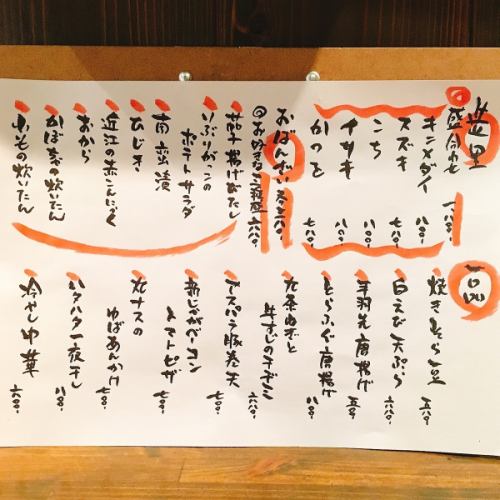 造里
盛合わせ 一八〇〇
キンメダイ 八〇〇
スズキ 七八〇
こち 八〇〇
イサキ 八〇〇
かつを 七八〇
おばんざい 各三八〇
◎お好きな三種盛 六八〇
茄子揚げびたし
いぶりがっこの
ポテトサラダ
南蛮漬
ひじき
近江の赤こんにゃく
おから
かぼちゃの炊いたん
小いもの炊いたん
一品
焼きそら豆 五八〇
白えび天ぷら 六八〇
手羽先唐揚げ 五〇〇
とらふぐ唐揚げ 八〇〇
九条ねぎと
牛すじのチヂミ 六八〇
アスパラ豚巻天 七八〇
新じゃがベーコン
トマトピザ 七〇〇
丸ナスの
ゆばあんかけ 七〇〇
ハタハタ一夜干し 八〇〇
冷やし中華 六八〇